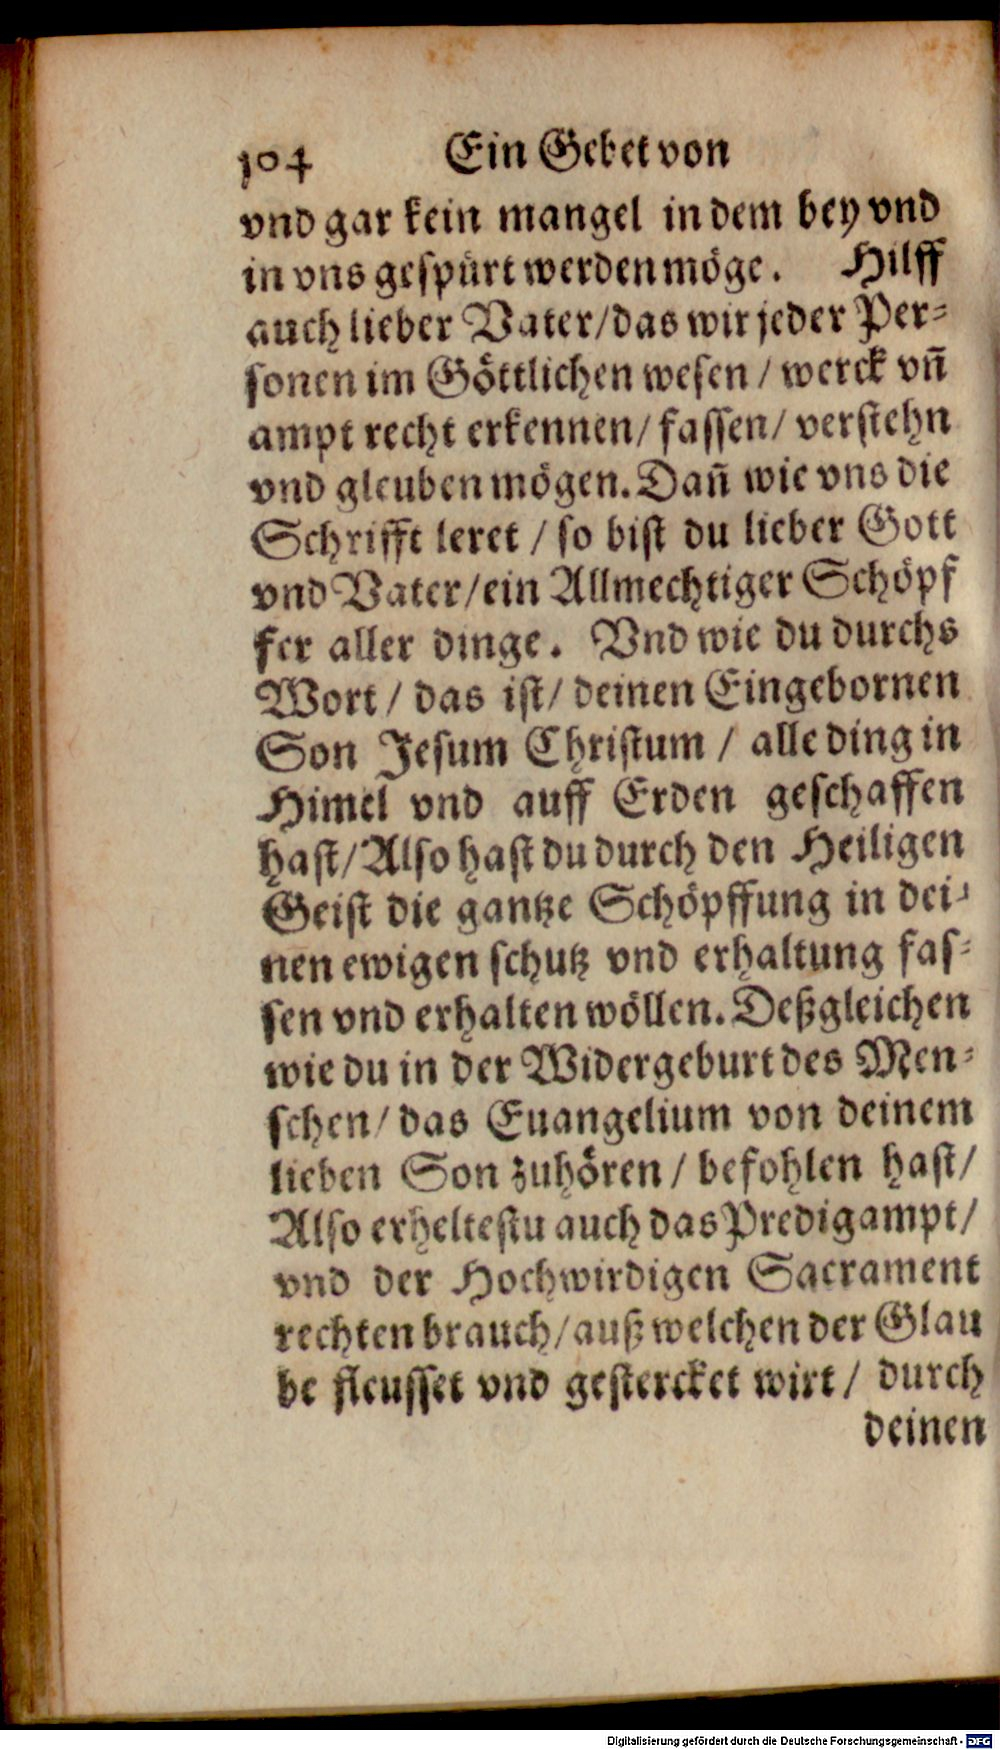 104 Ein Gebet von
vnd gar kein mangel in dem bey vnd
in vns gespürt werden möge. Hilff
auch lieber Vater/das wir jeder Per-
sonen im Göttlichen wesen / werck vñ
ampt recht erkennen/ fassen/ verstehn
vnd gleuben mögen. Dañ wie vns die
Schrifft leret / so bist du lieber Gott
vnd Vater/ein Allmechtiger Schöpf
fer aller dinge. Vnd wie du durchs
Wort / das ist/ deinen Eingebornen
Son Jesum Christum / alle ding in
Himel vnd auff Erden geschaffen
hast/Also hast du durch den Heiligen
Geist die gantze Schöpffung in dei-
nen ewigen schutz vnd erhaltung fas-
sen vnd erhalten wöllen. Deßgleichen
wie du in der Widergeburt des Men-
schen/ das Euangelium von deinem
lieben Son zuhören / befohlen hast/
Also erheltestu auch das Predigampt/
vnd der Hochwirdigen Sacrament
rechten brauch/auß welchen der Glau
be fleusset vnd gestercket wirt / durch
deinen
Digitalisierung gefördert durch die Deutsche Forschungsgemeinschaft - DFG